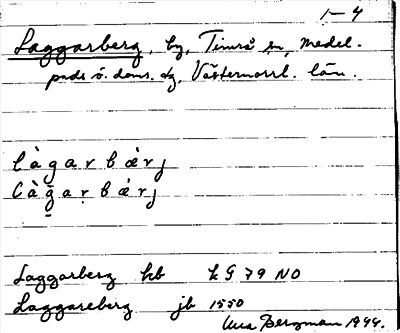 1–4
Laggarberg, by, Timrå sn, Medel-
pads ö. doms. dg, Västernorrl. län.
làgarbærj
làgarbærj
Laggarberg kb k G 79 NO
Laggareberg jb 1550
Bergman 1944.